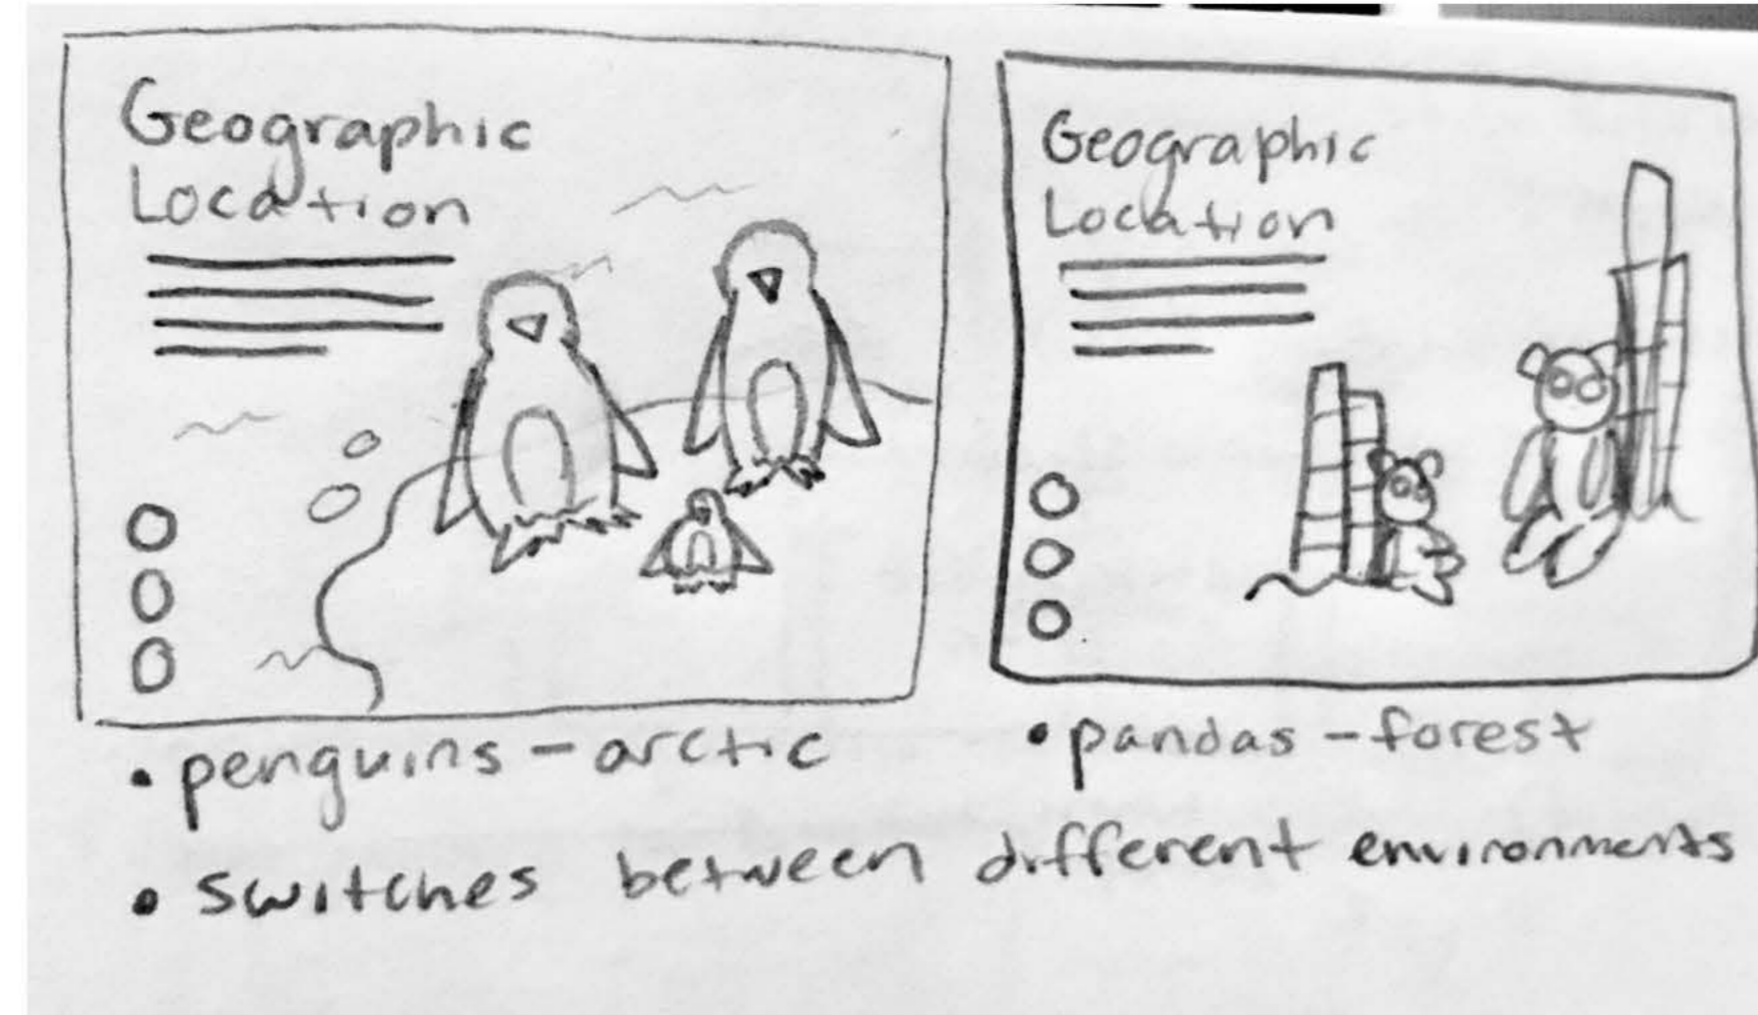 Geographic
Location
Geographic
Location
• penguins - arctic
• pandas - forest
• switches between different environments